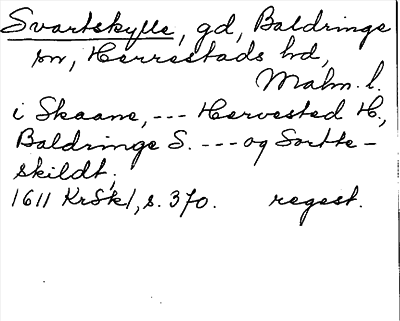 Svartskylle, gd, Baldringe
sn, Herrestads hd,
Malm. l.
i Skaane, --- Hervested H.,
Baldringe S. --- og Sortte-
skildt,
1611 KrSkl, s. 370. regest.